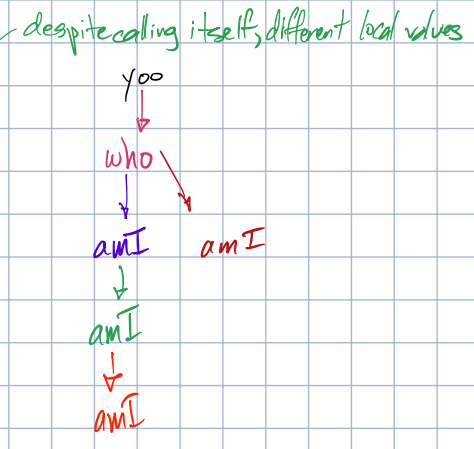 - despite calling itself, different local values
yoo
who
amI amI
amI
amI